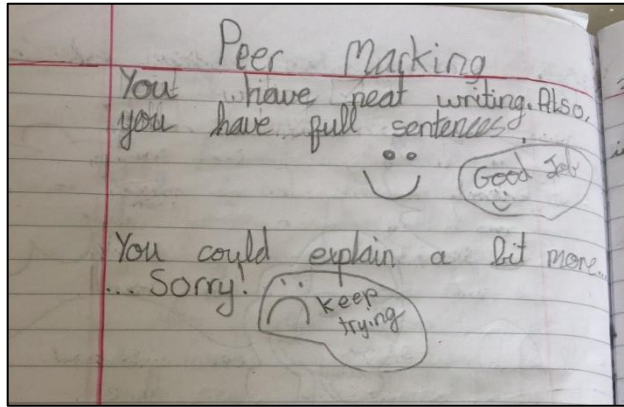 Peer Marking
You have neat writing. Also,
you have full sentences.
Good Job
You could explain a bit more...
... Sorry!
keep
trying